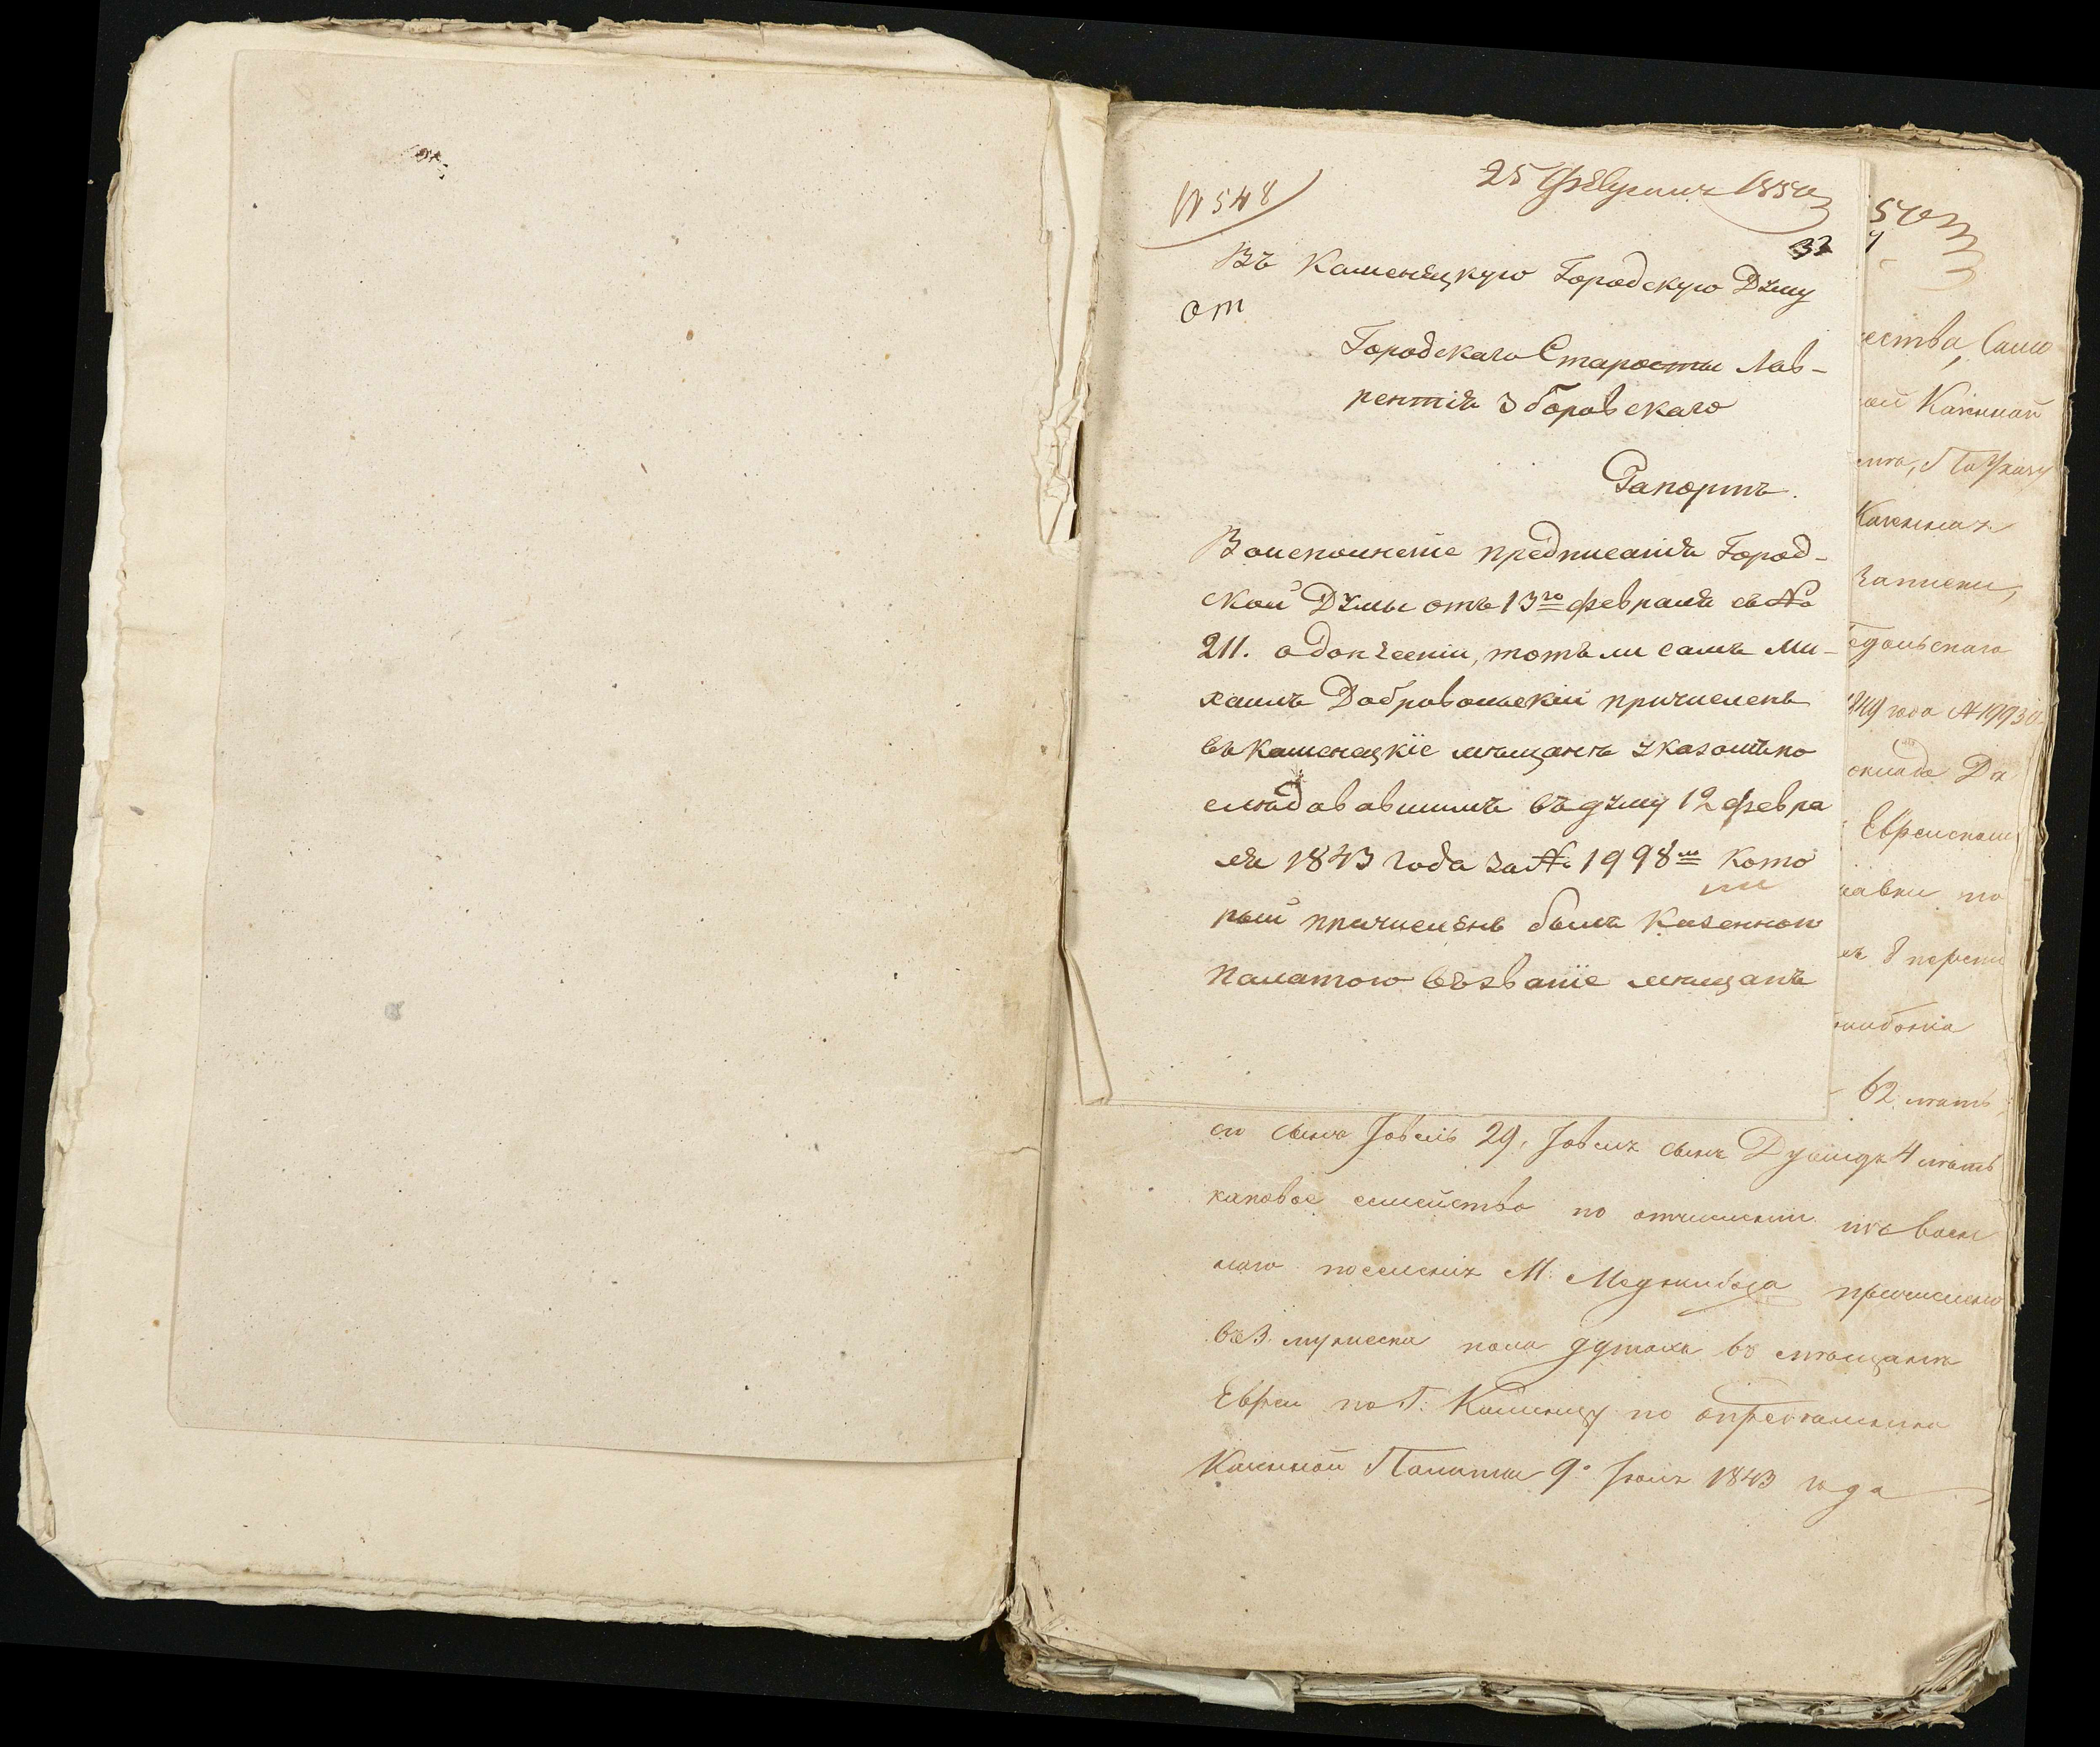 № 548
25 Февраля 1850
33
Въ Каменецкую Городскую Думу
от
Городскаго Старосты Лав-
рентія Зборовскаго
Рапортъ.
Во исполнение предписанія Город-
ской Думы отъ 13го февраля за №
211. о донесении, тотъ ли самъ Ми-
хаилъ Добровольскій причисленъ
въ Каменецкіе мещанъ указомъ по
следовавшимъ въ думу 12 февра
ля 1843 года за № 1998м кото
рый причисленъ былъ Казенною
ли
Палатою въ званіе мещанъ
50
ества, Само
ой Казенной
Казенная
Записки,
1849 года № 19930
оклада
Еврейском
равки по
62 летъ
его сынъ Іовель 29, Іовеля сынъ 4 летъ
каковое семейство по отчислении изъ воен
наго поселения М: Меджибожа причислено
въ 3. мужеска пола душахъ въ мещане
Евреи по Г: Каменцу по
Казенной Палаты 9. Июля 1843 года